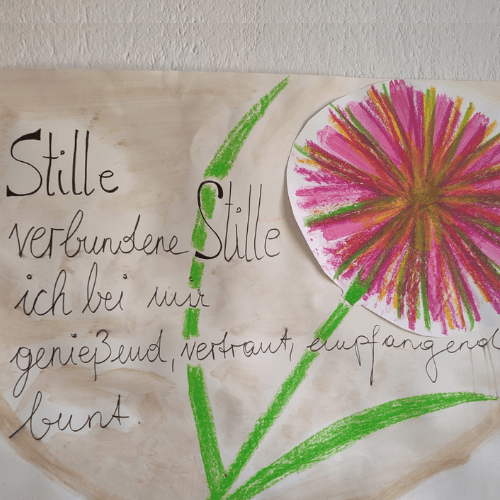 Stille
verbundene Stille
ich bei mir
genießend, vertraut, empfangend
bunt.